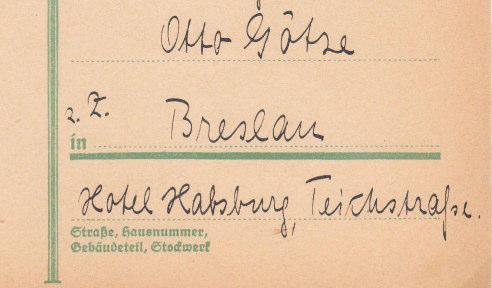 Otto Götze
z. Z.
in Breslau
Hotel Habsburg, Teichstraße.
Straße, Hausnummer,
Gebäudeteil, Stockwerk